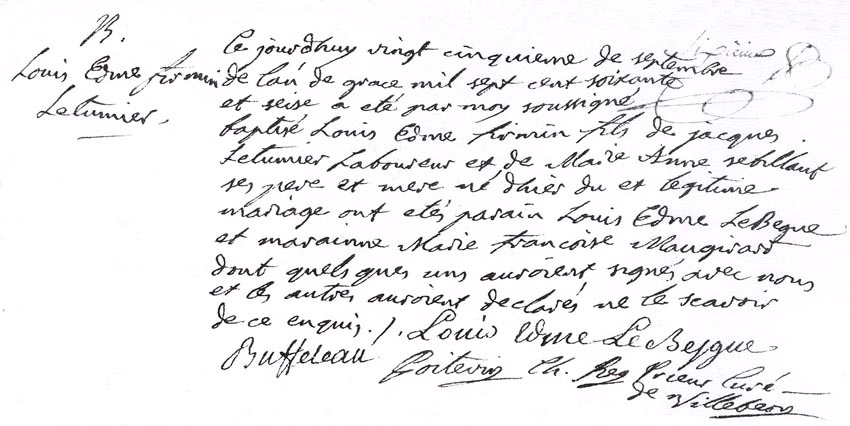 B.
Louis Edme firmin
Letumier.
Ce jourdhuy vingt cinquieme de septembre
de lan de grace mil sept cent soixante
et seise a eté par moy soussigné
baptisé Louis Edme firmin fils de jacques
Letumier Laboureur et de Marie Anne sebillaut
ses pere et mere né dhier du et legitime
mariage ont etés parain Louis Edme LeBegue
et marainne Marie francoise Maugirard
dont quels ques uns auroient signés avec nous
et les autres auroient declarés ne le scavoir
de ce enquis ./. Louis Edme Le Besgue
Buffeteau
Poitevin Ch. Reg prieur Curé
de Villebeon